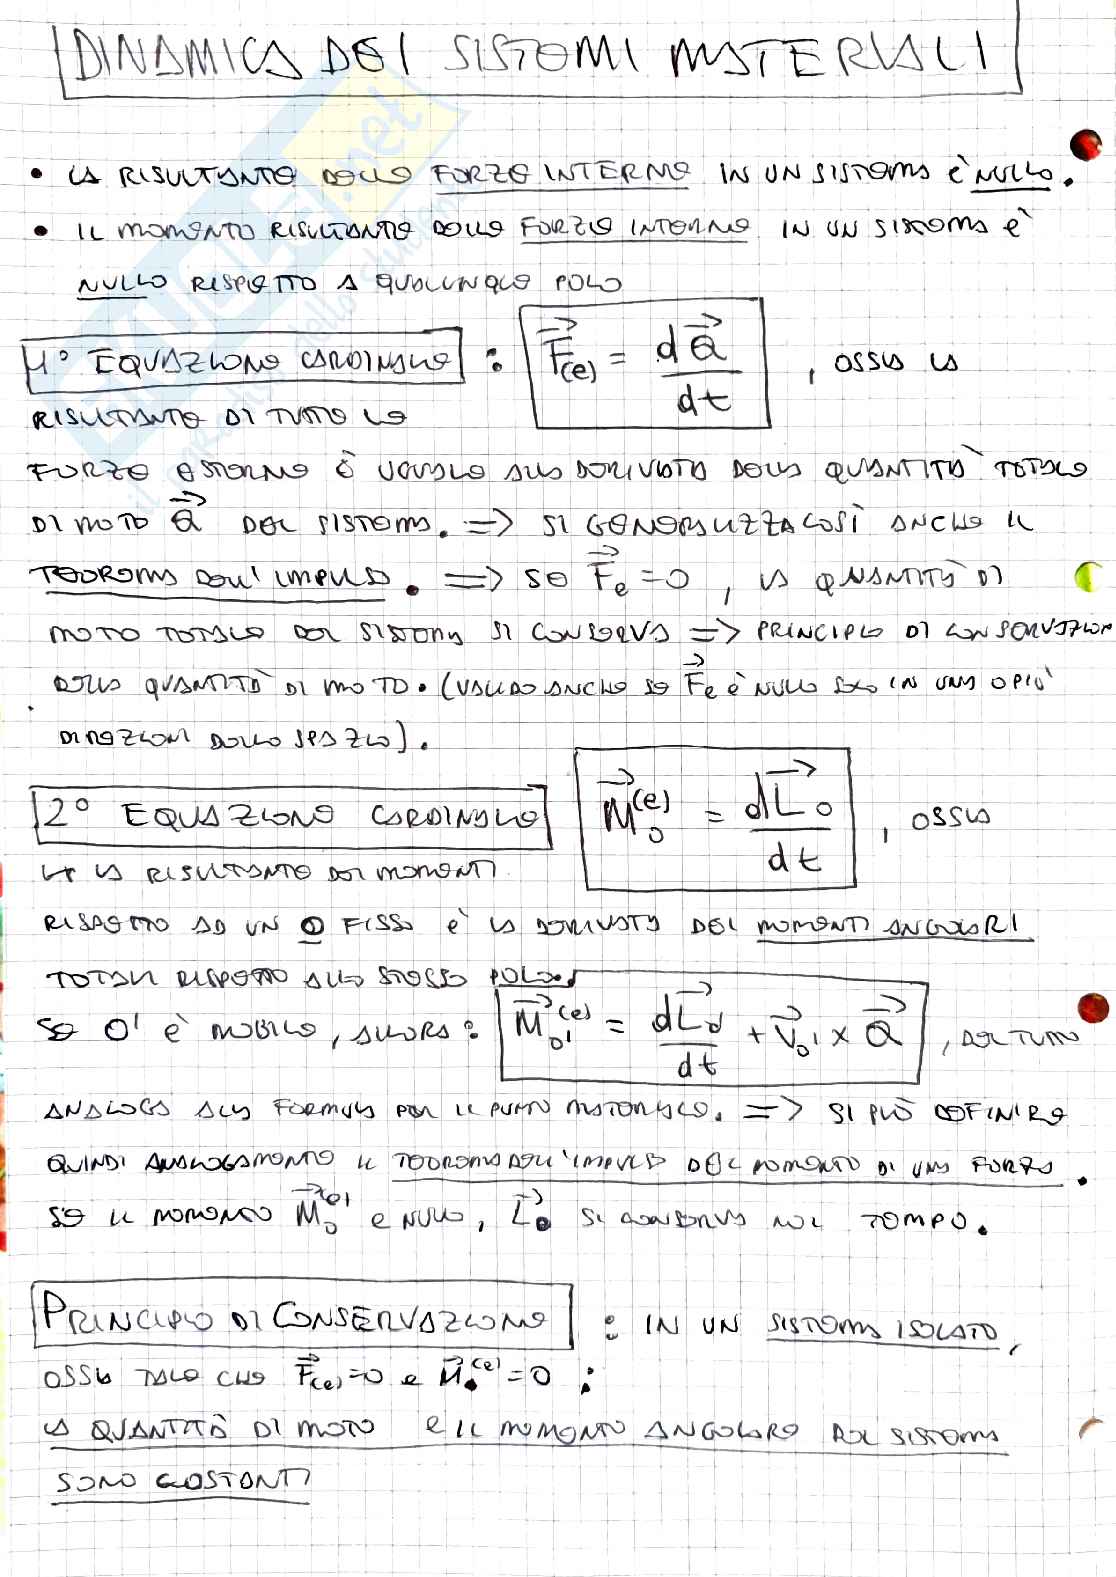 DINAMICA DEI SISTEMI MATERIALI
• LA RISULTANTE DELLE FORZE INTERNE IN UN SISTEMA È NULLO.
• IL MOMENTO RISULTANTE DELLE FORZE INTERNE IN UN SISTEMA È
NULLO RISPETTO A QUALUNQUE POLO
1° EQUAZIONE CARDINALE : F⃗(e) = dQ⃗/dt , OSSIA LA
RISULTANTE DI TUTTE LE
FORZE ESTERNE È UGUALE ALLA DERIVATA DELLA QUANTITÀ TOTALE
DI MOTO Q⃗ DEL SISTEMA. => SI GENERALIZZA COSÌ ANCHE IL
TEOREMA DELL'IMPULSO. => SE F⃗e = 0 , LA QUANTITÀ DI
MOTO TOTALE DEL SISTEMA SI CONSERVA => PRINCIPIO DI CONSERVAZION
DELLA QUANTITÀ DI MOTO. (VALIDO ANCHE SE F⃗e È NULLO SOLO IN UNA O PIÙ
DIREZIONI DELLO SPAZIO).
2° EQUAZIONE CARDINALE M⃗o(e) = dL⃗o/dt , OSSIA
↳ LA RISULTANTE DEI MOMENTI
RISPETTO AD UN O FISSO È LA DERIVATA DEI MOMENTI ANGOLARI
TOTALI RISPETTO ALLO STESSO POLO.
SE O' È MOBILE, ALLORA : M⃗o'(e) = dL⃗o'/dt + V⃗o' x Q⃗ , DEL TUTTO
ANALOGA ALLA FORMULA PER IL PUNTO MATERIALE. => SI PUÒ DEFINIRE
QUINDI ANALOGAMENTE IL TEOREMA DELL'IMPULSO DEL MOMENTO DI UNA FORZA.
SE IL MOMENTO M⃗o(e) È NULLO, L⃗o SI CONSERVA NEL TEMPO.
PRINCIPIO DI CONSERVAZIONE : IN UN SISTEMA ISOLATO,
OSSIA TALE CHE F⃗(e)=0 E M⃗o(e)=0 :
LA QUANTITÀ DI MOTO E IL MOMENTO ANGOLARE DEL SISTEMA
SONO COSTANTI